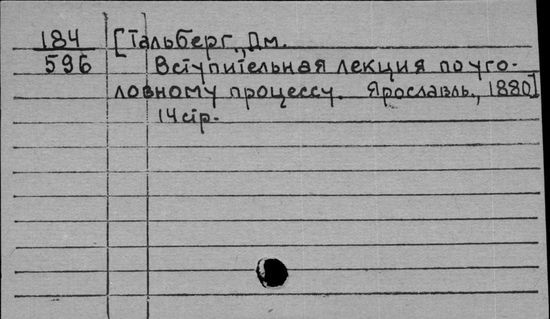 184 [Тальберг, Дм.
596 Вступительная лекция по уго-
ловному процессу. Ярославль, 1880]
14 стр.